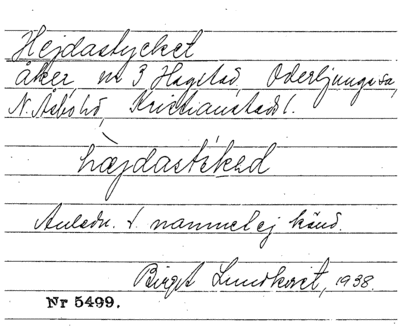 Hejdastycket
åker, nr 3 Hagstad, Oderljunga sn,
N. Åsbo hd, Kristianstads l.
Anledn. t. namnet ej känd.
Birgit Lundkvist, 1938.
Nr 5499.